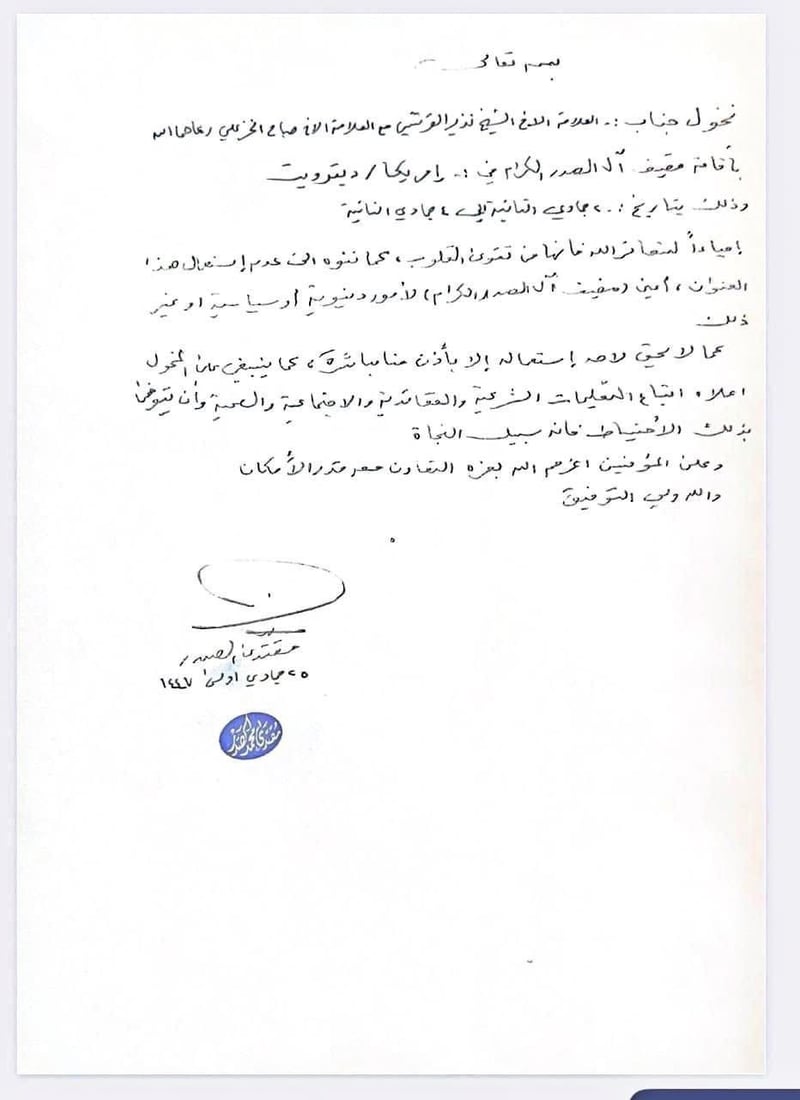 بسمه تعالى
نخول جناب :. العلامة الاخ الشيخ نذير القرشي مع العلامة الاخ صباح الخزعلي رعاهما الله
بأقامة مضيف آل الصدر الكرام في :. امريكا / ديترويت
وذلك بتاريخ :. ٢ جمادي الثانية إلى ٤ جمادي الثانية
إحياءاً لشعائر الله فأنها من تقوى القلوب ، كما ننوه الى عدم إستعمال هذا
العنوان ، أعني (مضيف آل الصدر الكرام) لأمور دنيوية أو سياسية او غير
ذلك
كما لا يحق لاحد إستعماله إلا بأذن منا مباشرة ، كما ينبغي على المخول
اعلاه اتباع التعليمات الشرعية والعقائدية والاجتماعية والصحية وأن يتوخى
بذلك الأحتياط فانه سبيل النجاة
وعلى المؤمنين اعزهم الله بعزه التعاون معه قدر الأمكان
والله ولي التوفيق
مقتدى الصدر
٢٥ جمادي اولى ١٤٤٧
مقتدى محمد الصدر